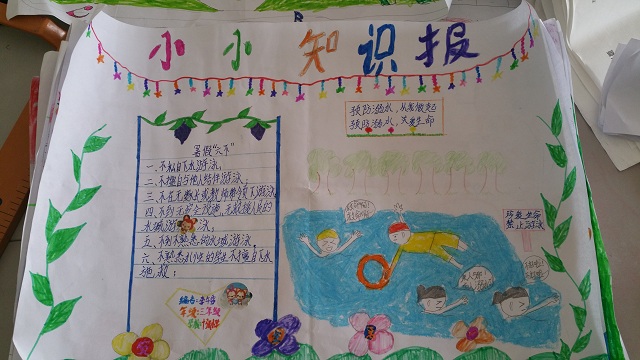 小小知识报
预防溺水,从我做起
预防溺水,关爱生命
暑假"六不"
一、不私自下水游泳;
二、不擅自与他人结伴游泳;
三、不在无家长或教师带领下游泳;
四、不到无安全设施、无救援人员的
水域游泳;
五、不到不熟悉的水域游泳;
六、不熟悉水性的学生不擅自下水
施救;
珍爱生命
禁止游泳
编者:
年级:三年级